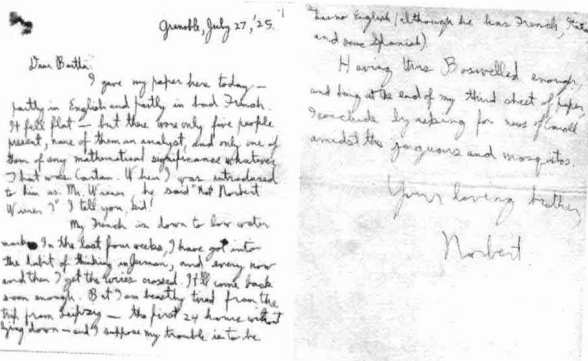 Grenoble, July 27, '25.
Dear Bertha:
I gave my paper here today —
partly in English and partly in bad French.
It fell flat — but there were only five people
present, none of them an analyst, and only one of
them of any mathematical significance whatever
that was Cartan. When I was introduced
to him as Mr. Wiener he said "Not Norbert
Wiener?" I tell you, kid!
My French is down to low water
mark. In the last four weeks, I have got into
the habit of thinking in German, and every now
and then I get the wires crossed. It'll come back
soon enough. But I am beastly tired from the
trip from Leipzig — the first 24 hours without
lying down — and I suppose my trouble is to be
no English (although he has French,
and some Spanish)
Having thus Boswelled enough,
and being at the end of my third sheet of paper,
I conclude by asking for news of
amidst the jaguars and mosquitos.
Your loving brother,
Norbert